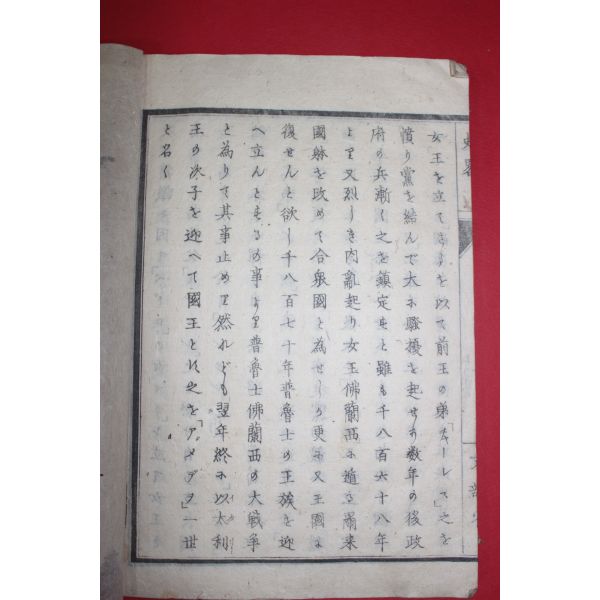 女王を立てしを以て前王の弟「カーレス」之を
憤り黨を結んで大に騒擾を起せり数年の後政
府の兵漸く之を鎮定すと雖も千八百六十八年
より又烈しき内亂起り女王佛蘭西に遁る爾来
國躰を改めて合衆國と為せしが更に又王國に
復せんと欲し千八百七十年普魯士の王族を迎
へ立んとするの事より普魯士佛蘭西の大戦争
と為りて其事止めり然れども翌年終に以太利
王の次子を迎へて國王とし之を「アメデヲ」一世
と名く
史畧